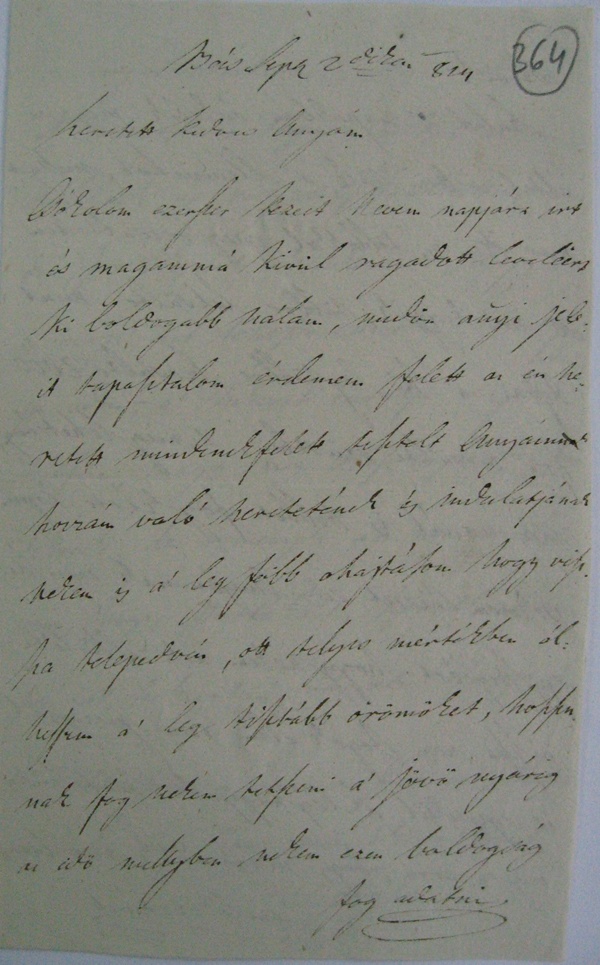 364
Bécs Sept 2dikán 814
Szeretett kedves Anyám
Csókolom ezerszer kezeit Nevem napjára irt
és magammá kivül ragadott leveléért
ki boldogabb nálam, midőn anyi jele-
it tapasztalom érdemem felett az én sze-
retett mindenekfelett tisztelt Anyámnak
hozzám való szeretetének és indulatjának
nekem is a' leg főbb ohajtásom hogy visz-
sza telepedvén, ott teljes mértékben él-
hessem a' leg tisztább örömöket, hosszu-
nak fog nekem tetszeni a' jövő nyárig
az idő mellyben nekem ezen boldogság
fog adatni.